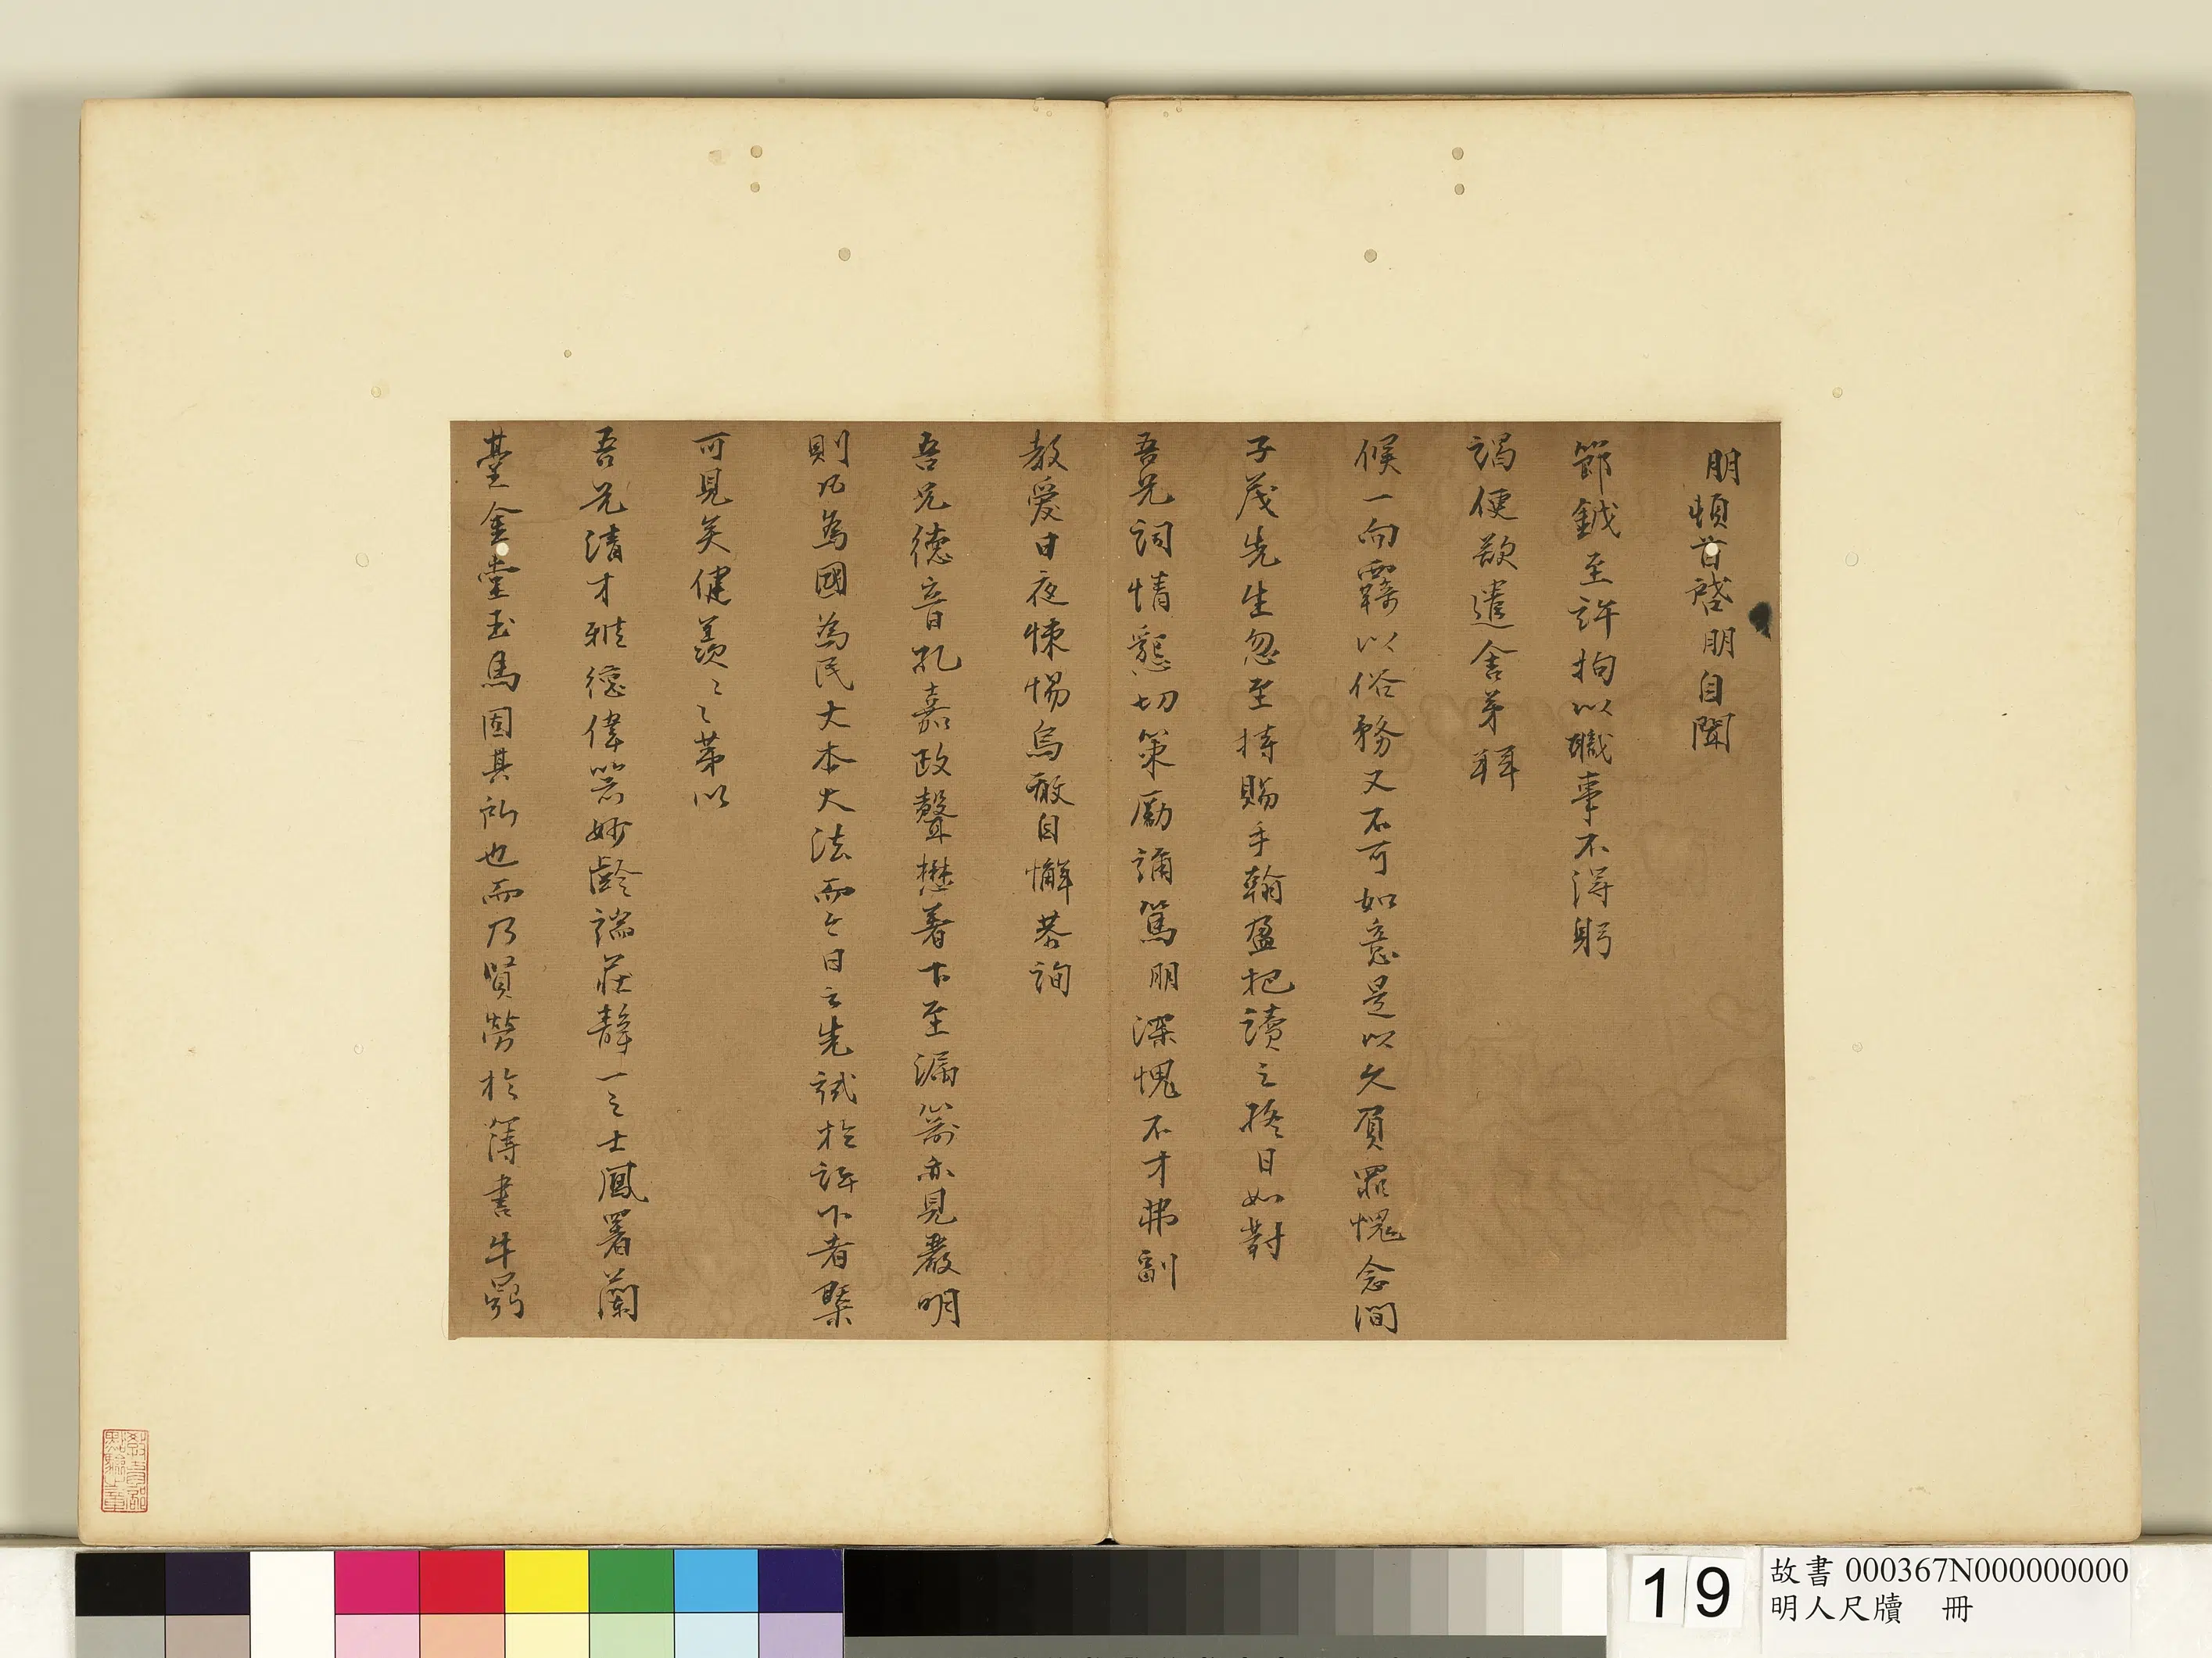 朋頓首啓朋自聞
節鉞至許拘以職事不得躬
謁便欲遣舍弟拜
候一向羇以俗務又不可如意是以久負罪愧念間
子茂先生忽至持賜手翰盈把讀之終日如對
吾兄詞情懇切策勵誨篤朋深愧不才弗副
教愛日夜悚惕烏敢自懈恭詢
吾兄德音孔嘉政聲懋著下至漏箭亦見嚴明
則凡為國為民大本大法而今日云先試於許下者槩
可見矣健羨〻〻第以
吾兄清才雅德偉器妙齡端莊靜一之士鳳署蘭
臺金堂玉馬固其所也而乃賢勞於簿書牛
19
故書 000367N000000000
明人尺牘 冊